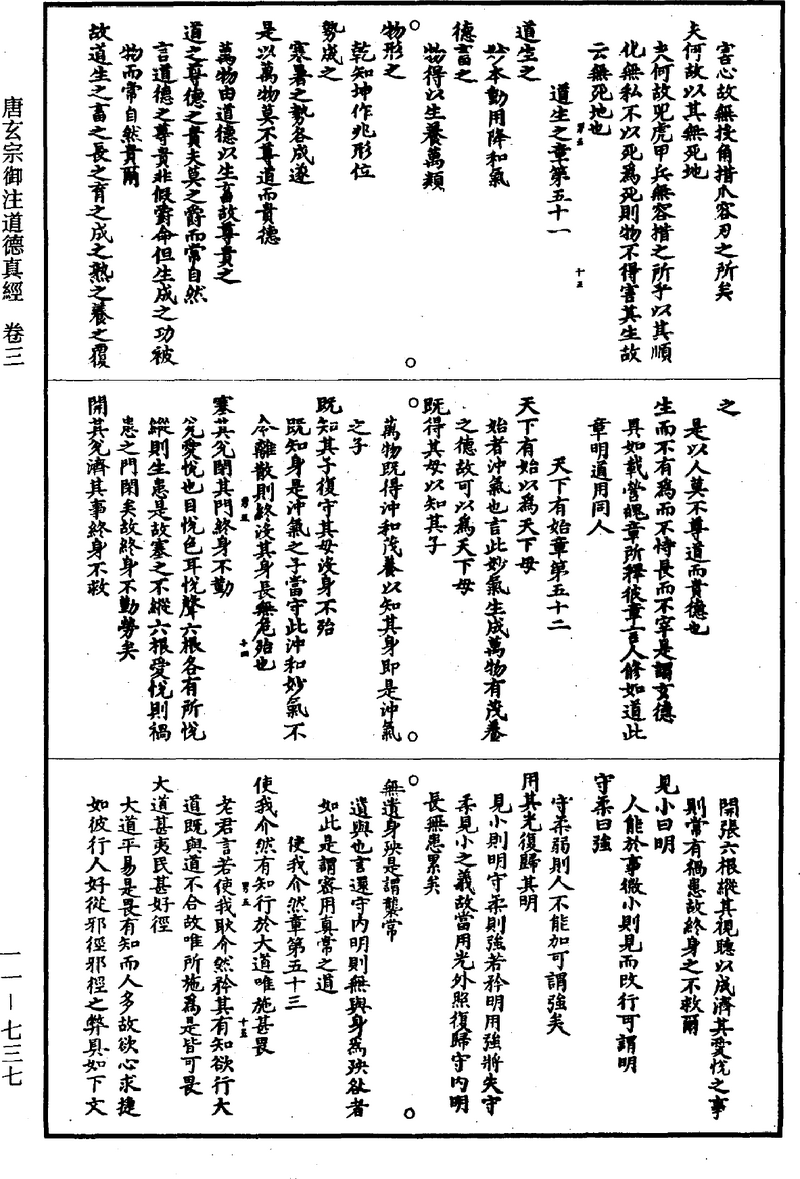 害心故無投角措爪容刃之所矣
夫何故以其無死地
夫何故兕虎甲兵無容措之所乎以其順
化無私不以死為死則物不得害其生故
云無死地也
道生之章第五十一
道生之
妙本動用降和氣
德畜之
物得以生養萬類
物形之
乾知坤作兆形位
勢成之
寒暑之勢各成遂
是以萬物莫不尊道而貴德
萬物由道德以生畜故尊貴之
道之尊德之貴夫莫之爵而常自然
言道德之尊貴非假爵命但生成之功被
物而常自然貴爾
故道生之畜之長之育之成之熟之養之覆
之
是以人莫不尊道而貴德也
生而不有為而不恃長而不宰是謂玄德
具如載營魄章所釋彼章言人修如道此
章明道用同人
天下有始章第五十二
天下有始以為天下母
始者沖氣也言此妙氣生成萬物有茂養
之德故可以為天下母
既得其母以知其子
萬物既得沖和茂養以知其身即是沖氣
之子
既知其子復守其母沒身不殆
既知身是沖氣之子當守此沖和妙氣不
令離散則終沒其身長無危殆也
塞其兌閉其門終身不勤
兌愛悅也目悅色耳悅聲六根各有所悅
縱則生患是故塞之不縱六根愛悅則禍
患之門閉矣故終身不勤勞矣
開其兌濟其事終身不救
開張六根縱其視聽以成濟其愛悅之事
則常有禍患故終身之不救爾
見小曰明
人能於事微小則見而改行可謂明
守柔曰強
守柔弱則人不能加可謂強矣
用其光復歸其明
見小則明守柔則強若矜明用強將失守
柔見小之義故當用光外照復歸守內明
長無患累矣
無遺身殃是謂襲常
遺與也言還守內明則無與身為殃咎者
如此是謂密用真常之道
使我介然章第五十三
使我介然有知行於大道唯施甚畏
老君言若使我耿介然矜其有知欲行大
道既與道不合故唯所施為是皆可畏
大道甚夷民甚好徑
大道平易是畏有知而人多故欲心求捷
如彼行人好從邪徑邪徑之弊具如下文
唐玄宗御注道德真經　卷三
一一－七三七